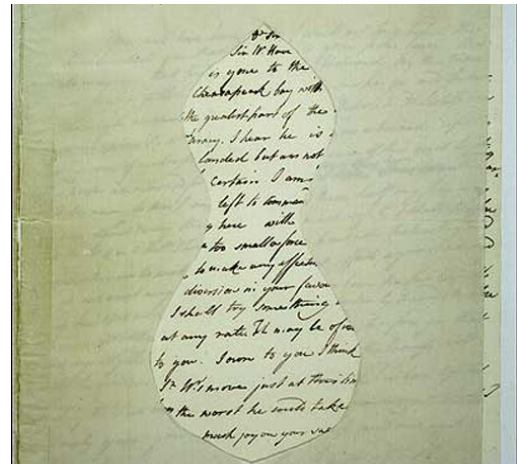 Dr Sir
Sir W. Howe
is gone to the
Chesapeak bay with
the greatest part of the
army. I hear he is
landed but am not
certain. I am
left to command
here with
a too small a force
to make any effectual
diversion in your favour
I shall try something
at any rate. It may be of use
to you. I own to you I think
Sr W's move just at this time
the worst he could take
much joy on your